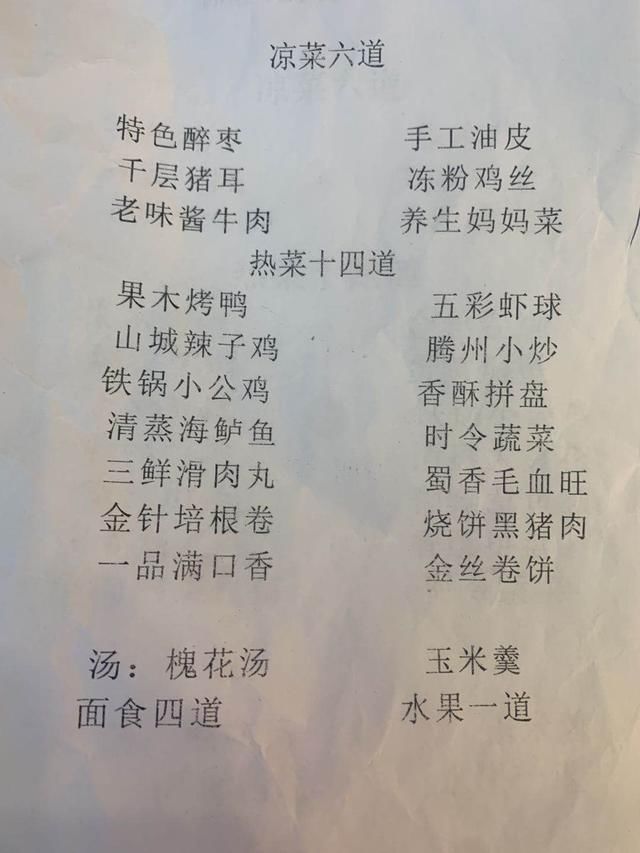 凉菜六道
特色醉枣 手工油皮
千层猪耳 冻粉鸡丝
老味酱牛肉 养生妈妈菜
热菜十四道
果木烤鸭 五彩虾球
山城辣子鸡 腾州小炒
铁锅小公鸡 香酥拼盘
清蒸海鲈鱼 时令蔬菜
三鲜滑肉丸 蜀香毛血旺
金针培根卷 烧饼黑猪肉
一品满口香 金丝卷饼
汤：槐花汤 玉米羹
面食四道 水果一道